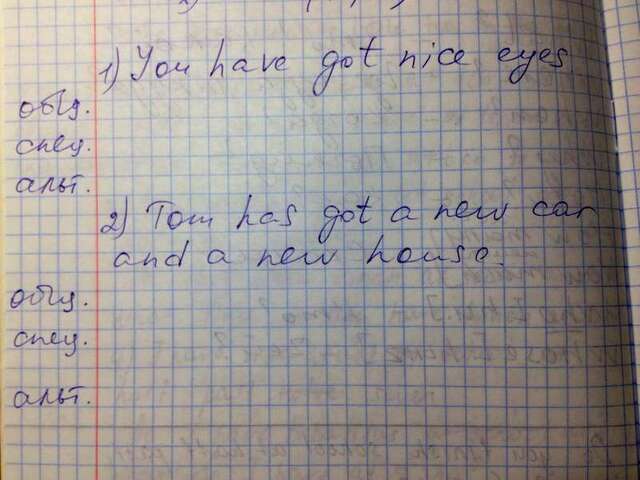 1) You have got nice eyes
общ.
спец.
альт.
2) Tom has got a new car
and a new house.
общ.
спец.
альт.